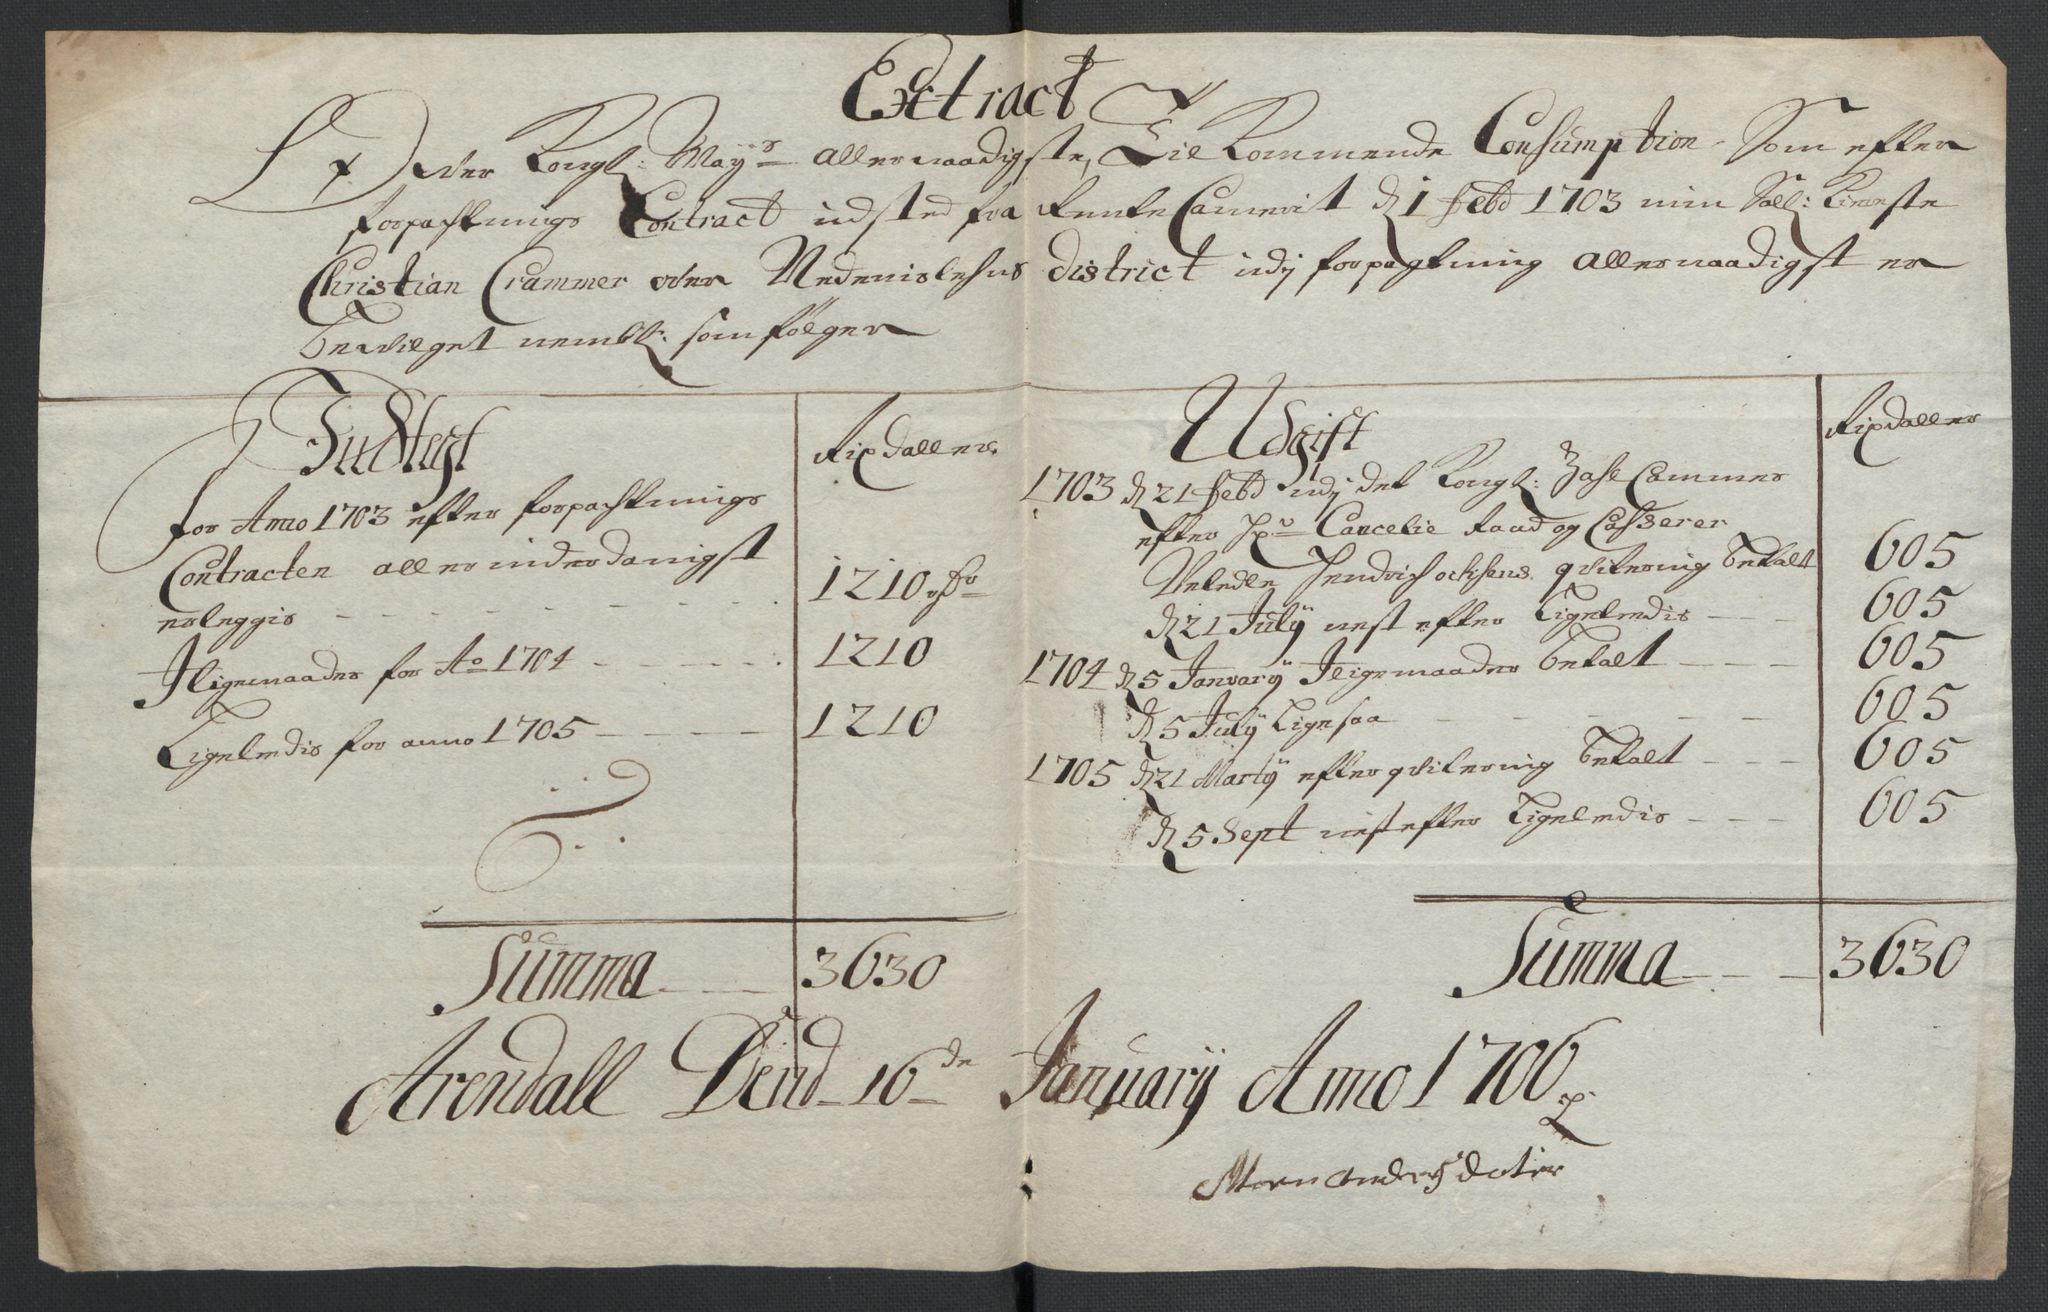 Extract
Over Kongl: Mayrs allernaadigste, Tilkommende Consumption Som efter
forpachtnings Contract udsted fra RenteCamerit d 1 Febr 1703 min Sall: Kieræste
Christian Crammer over Nedenislehns district udj forpagtning allernaadigst er
bevilget nembl: som følger
Indtegt
Rixdaller
for Anno 1703 efter forpachtnings
Contracten allerunderdanigst
erleggis - - - - - - - 1210 rdr
Iligemaader for Ao 1704 - - - - - 1210
Ligeledis for anno 1705 - - - - - 1210
Summa - - - 3630
Udgift
Rixdaller
1703 d 21 Febr udj det Kongl: Zahl Cammer
efter Hr Cancelie Raad og Casserer
Veledle Hendrich ochsens qvitering betalt 605
d 21 July nest efter Ligeledis - - - 605
1704 d 5 January Iligemaader betalt - - - 605
d 5 July Ligesaa - - - - - - 605
1705 d 21 Marty efter qvitering betalt - - - 605
d 5 Sept nest efter Ligeledis - - - 605
Summa - - - 3630
Arendall Dend 16de January Anno 1706
Maren andersdater